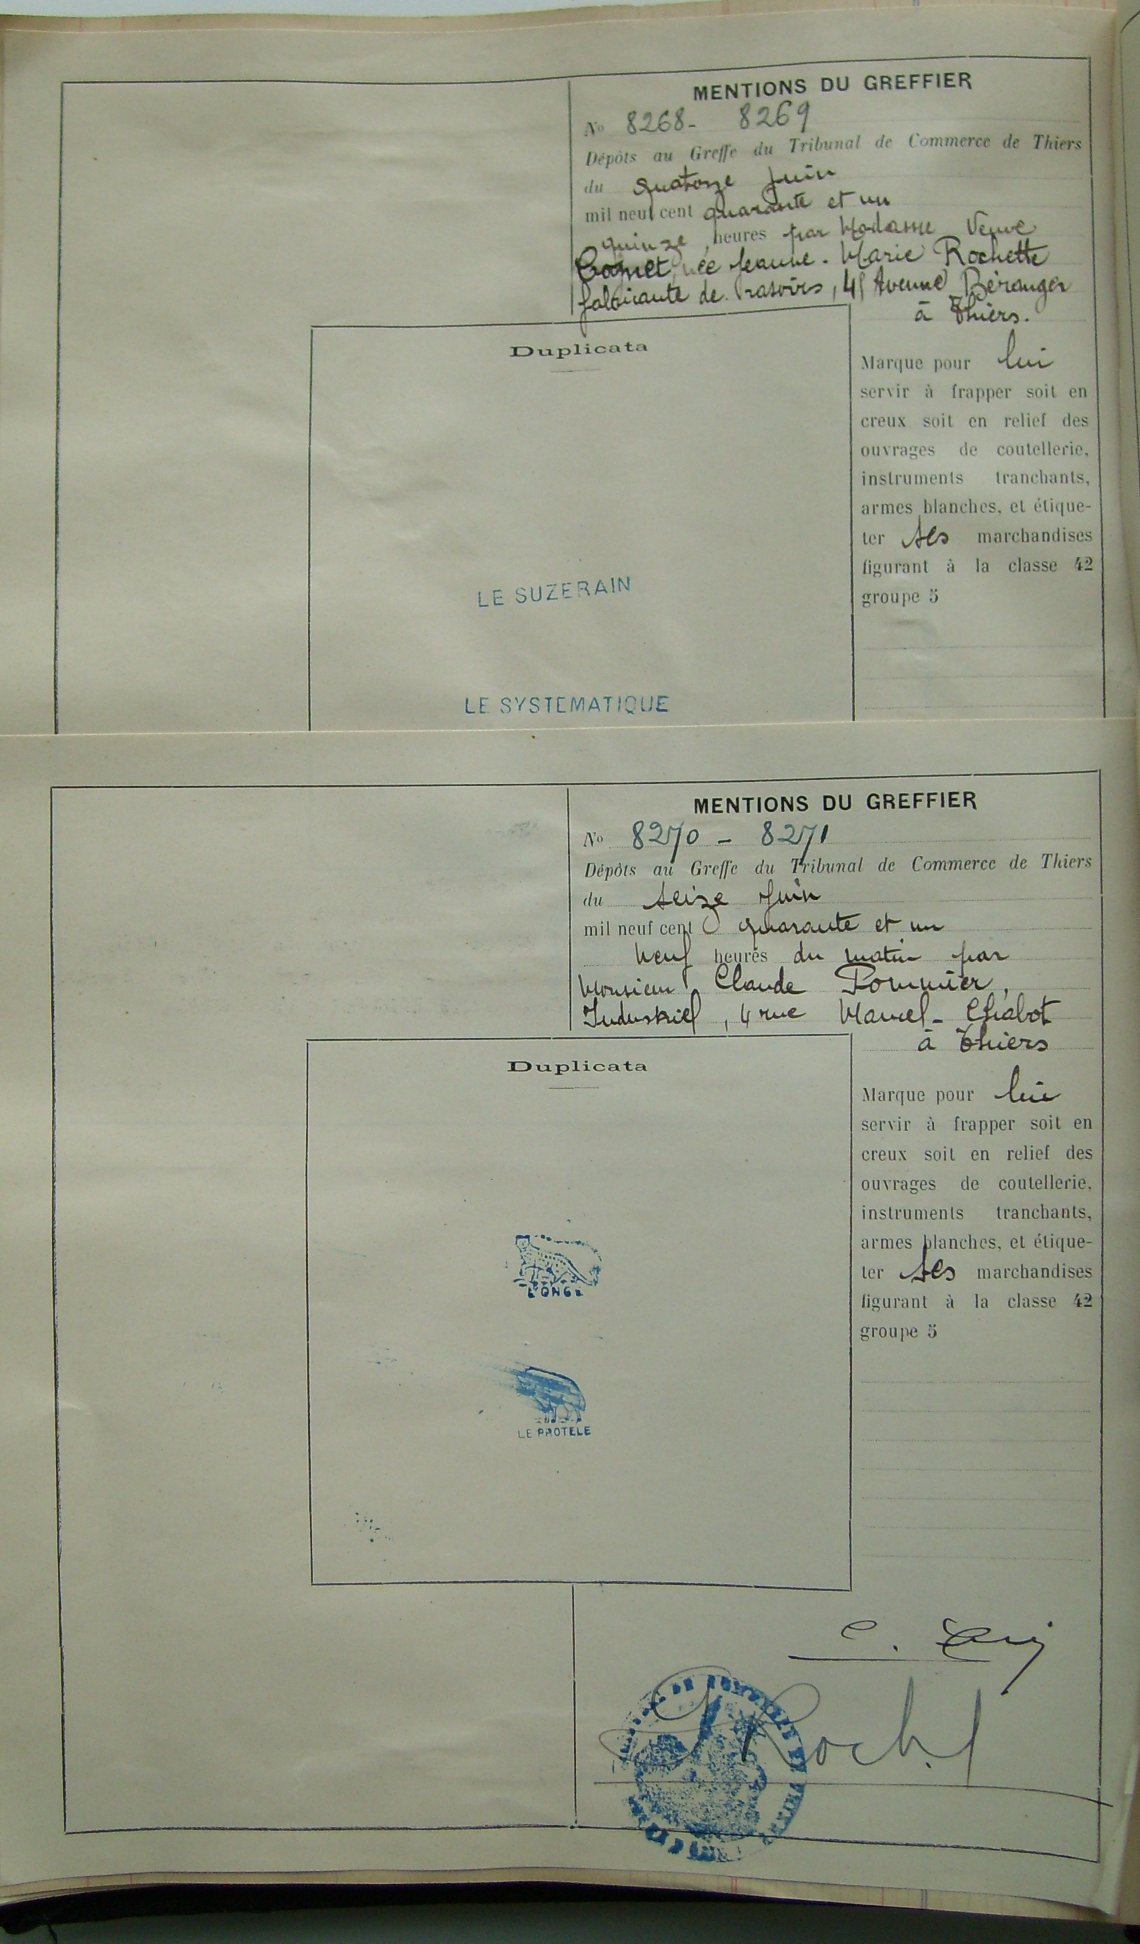 MENTIONS DU GREFFIER
No 8268 - 8269
Dépôts au Greffe du Tribunal de Commerce de Thiers
du quatorze juin
mil neuf cent quarante et un
quinze heures par Madame Veuve
née Jeanne - Marie Rochette
fabricante de rasoirs, Avenue Béranger
à Thiers.
Duplicata
Marque pour lui
servir à frapper soit en
creux soit en relief des
ouvrages de coutellerie,
instruments tranchants,
armes blanches, et étique-
ter ses marchandises
figurant à la classe 42
groupe 5
LE SUZERAIN
LE SYSTEMATIQUE
MENTIONS DU GREFFIER
No 8270 - 8271
Dépôts au Greffe du Tribunal de Commerce de Thiers
du seize juin
mil neuf cent quarante et un
neuf heures du matin par
Monsieur Claude Pommier,
Industriel, 4 rue Chabot
à Thiers
Duplicata
Marque pour lui
servir à frapper soit en
creux soit en relief des
ouvrages de coutellerie,
instruments tranchants,
armes blanches, et étique-
ter ses marchandises
figurant à la classe 42
groupe 5
L'ONCE
LE PROTELE